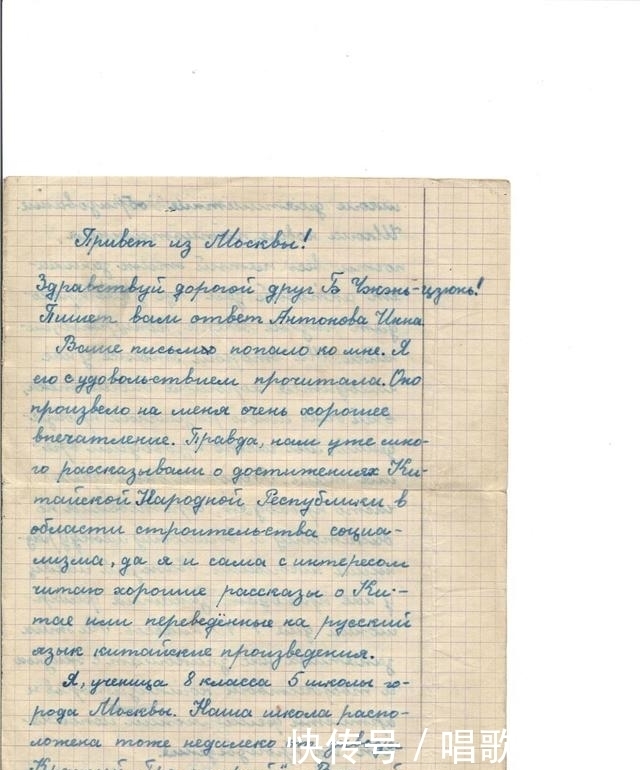 Привет из Москвы!
Здравствуй дорогой друг Бэ Чжэнь-цзюнь!
Пишет вам ответ Антонова Инна
Ваше письмо попало ко мне. Я
его с удовольствием прочитала. Оно
произвело на меня очень хорошее
впечатление. Правда, нам уже мно-
го рассказывали о достижениях Ки-
тайской Народной Республики в
области строительства социа-
лизма, да я и сама с интересом
читаю хорошие рассказы о Ки-
тае или переведённые на русский
язык китайские произведения.
Я, ученица 8 класса 5 школы го-
рода Москвы. Наша школа распо-
ложена тоже недалеко от
快传号 / 唱歌